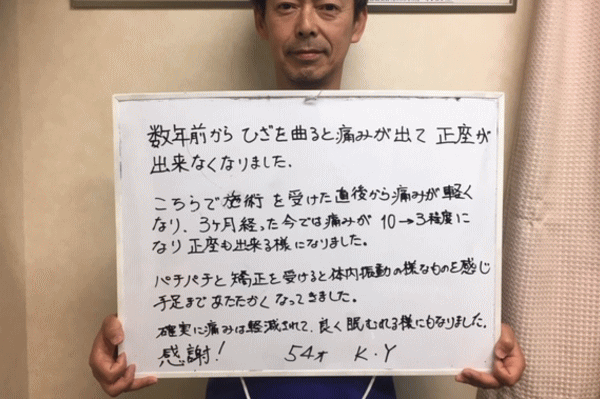 数年前から ひざを曲ると痛みが出て 正座が
出来なくなりました.
こちらで施術を受けた直後から痛みが軽く
なり、3ヶ月経った今では痛みが 10→3程度に
なり 正座も出来る様になりました。
パチパチと矯正を受けると体内振動の様なものを感じ
手足まであたたかくなってきました。
確実に痛みは軽減されて、良く眠むれる様にもなりました.
感謝! 54才 K.Y